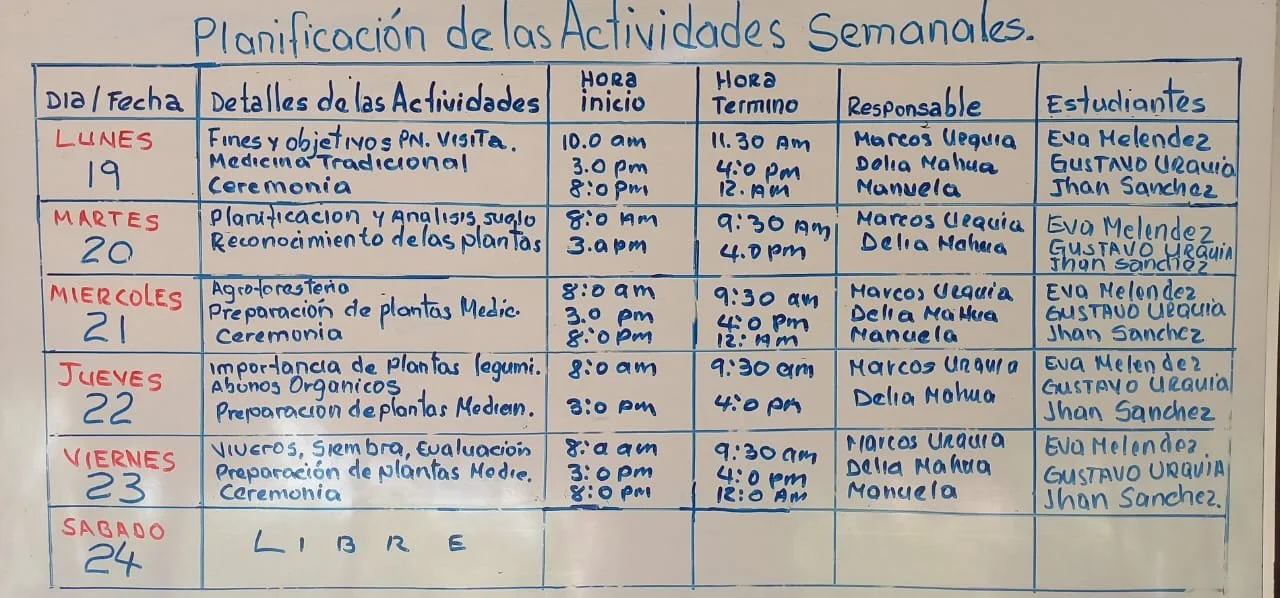 Planificación de las Actividades Semanales.
Dia/Fecha | Detalles de las Actividades | Hora inicio | Hora Termino | Responsable | Estudiantes
LUNES 19
Fines y objetivos PN. Visita. | 10.0 am | 11.30 Am | Marcos Urquia | Eva Melendez
Medicina Tradicional | 3.0 pm | 4:0 pm | Delia Mahua | GUSTAVO URQUIA
Ceremonia | 8:0 pm | 12. AM | Manuela | Jhan Sanchez
MARTES 20
Planificacion y Analisis suelo | 8:0 AM | 9:30 AM | Marcos Urquia | Eva Melendez
Reconocimiento de las plantas | 3.0 pm | 4.0 pm | Delia Mahua | GUSTAVO URQUIA
Jhan Sanchez
MIERCOLES 21
Agroforesteria | 8:0 am | 9:30 am | Marcos Urquia | Eva Melendez
Preparación de plantas Medic. | 3.0 pm | 4:0 pm | Delia Mahua | GUSTAVO URQUIA
Ceremonia | 8:0 pm | 12: AM | Manuela | Jhan Sanchez
JUEVES 22
Importancia de plantas legumi. | 8:0 am | 9:30 am | Marcos Urquia | Eva Melendez
Abonos Organicos | GUSTAVO URQUIA
Preparación de plantas Medicin. | 3:0 pm | 4:0 pm | Delia Mahua | Jhan Sanchez
VIERNES 23
Viveros, Siembra, Evaluación | 8:0 am | 9:30 am | Marcos Urquia | Eva Melendez.
Preparación de plantas Medic. | 3:0 pm | 4:0 pm | Delia Mahua | GUSTAVO URQUIA
Ceremonia | 8:0 pm | 12:0 AM | Manuela | Jhan Sanchez.
SABADO 24
LIBRE